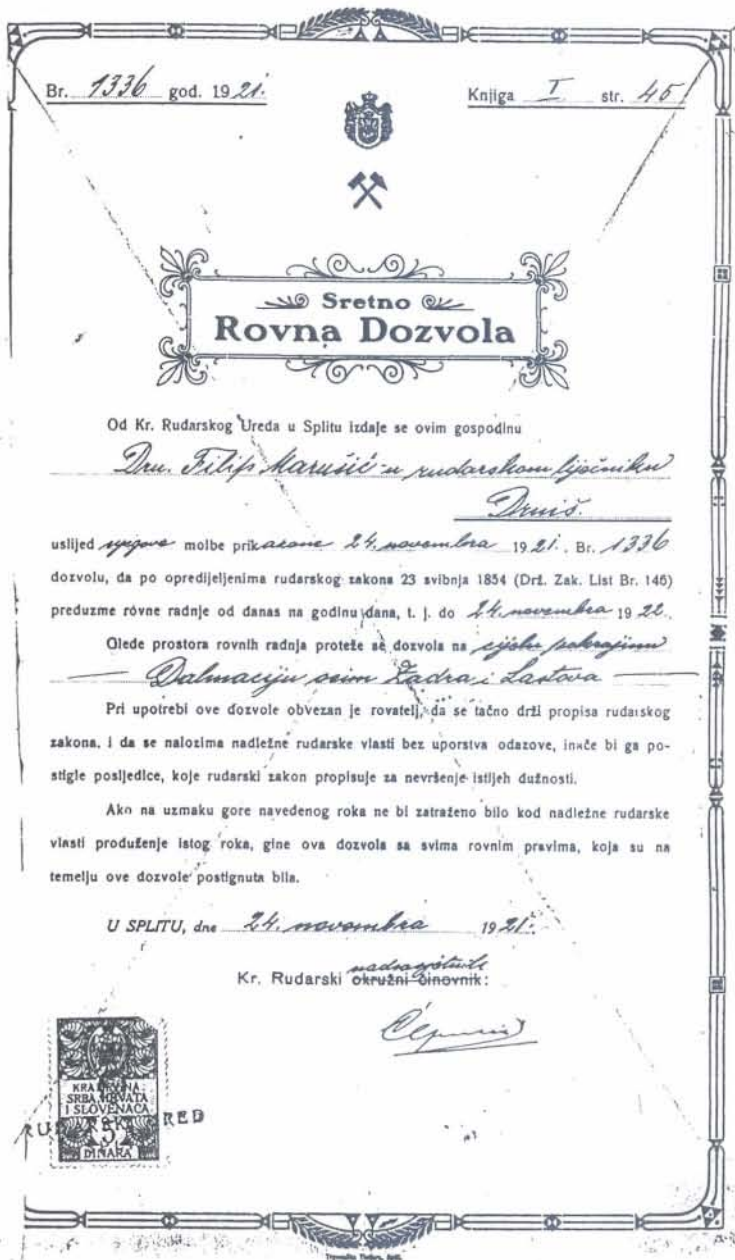 Br. 1336 god. 1921.
Knjiga I str. 45
Sretno
Rovna Dozvola
Od Kr. Rudarskog Ureda u Splitu izdaje se ovim gospodinu
Dru. Filip Marušić-u rudarskom liječniku
Drniš.
uslijed njegove molbe prikazane 24. novembra 1921. Br. 1336
dozvolu, da po opredijeljenima rudarskog zakona 23 svibnja 1854 (Drž. Zak. List Br. 146)
preduzme rovne radnje od danas na godinu dana, t. j. do 24. novembra 1922.
Glede prostora rovnih radnja proteže se dozvola na cijelu pokrajinu
Dalmaciju osim Zadra i Lastova
Pri upotrebi ove dozvole obvezan je rovatelj, da se tačno drži propisa rudarskog
zakona, i da se nalozima nadležne rudarske vlasti bez uporstva odazove, inače bi ga po-
stigle posljedice, koje rudarski zakon propisuje za nevršenje istijeh dužnosti.
Ako na uzmaku gore navedenog roka ne bi zatraženo bilo kod nadležne rudarske
vlasti produženje istog roka, gine ova dozvola sa svima rovnim pravima, koja su na
temelju ove dozvole postignuta bila.
U SPLITU, dne 24. novembra 1921.
Kr. Rudarski okružni činovnik:
KRALJEVINA
SRBA, HRVATA
I SLOVENACA
5
DINARA
RUDARSKI URED